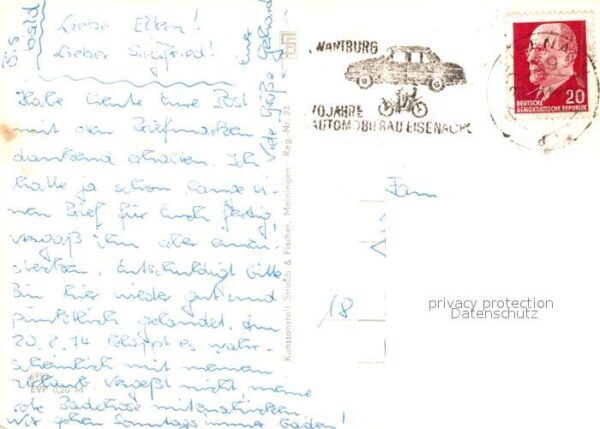 Liebe Eltern!
Lieber Siegfried!
Habe heute Eure Post
mit den Briefmarken
dankend erhalten. Ich
hatte ja schon lange ei-
nen Brief für Euch fertig,
vergaß ihn aber einzu-
stecken. Entschuldigt bitte.
Bin hier wieder gut und
pünktlich gelandet. Am
20. 2. 74 klappt es wahr-
scheinlich mit meinem
Urlaub. Vergeßt nicht meine
rote Badehose mitzuschicken.
Wir gehen Sonntags immer baden!
Bis bald
Viele Grüße Euer Gerhard
Kunstanstalt Straub & Fischer, Meiningen Reg. Nr. 23
EVP 0,20 M
WARTBURG
70 JAHRE
AUTOMOBILBAU EISENACH
DEUTSCHE
DEMOKRATISCHE REPUBLIK
20
Fam.
18
privacy protection
Datenschutz